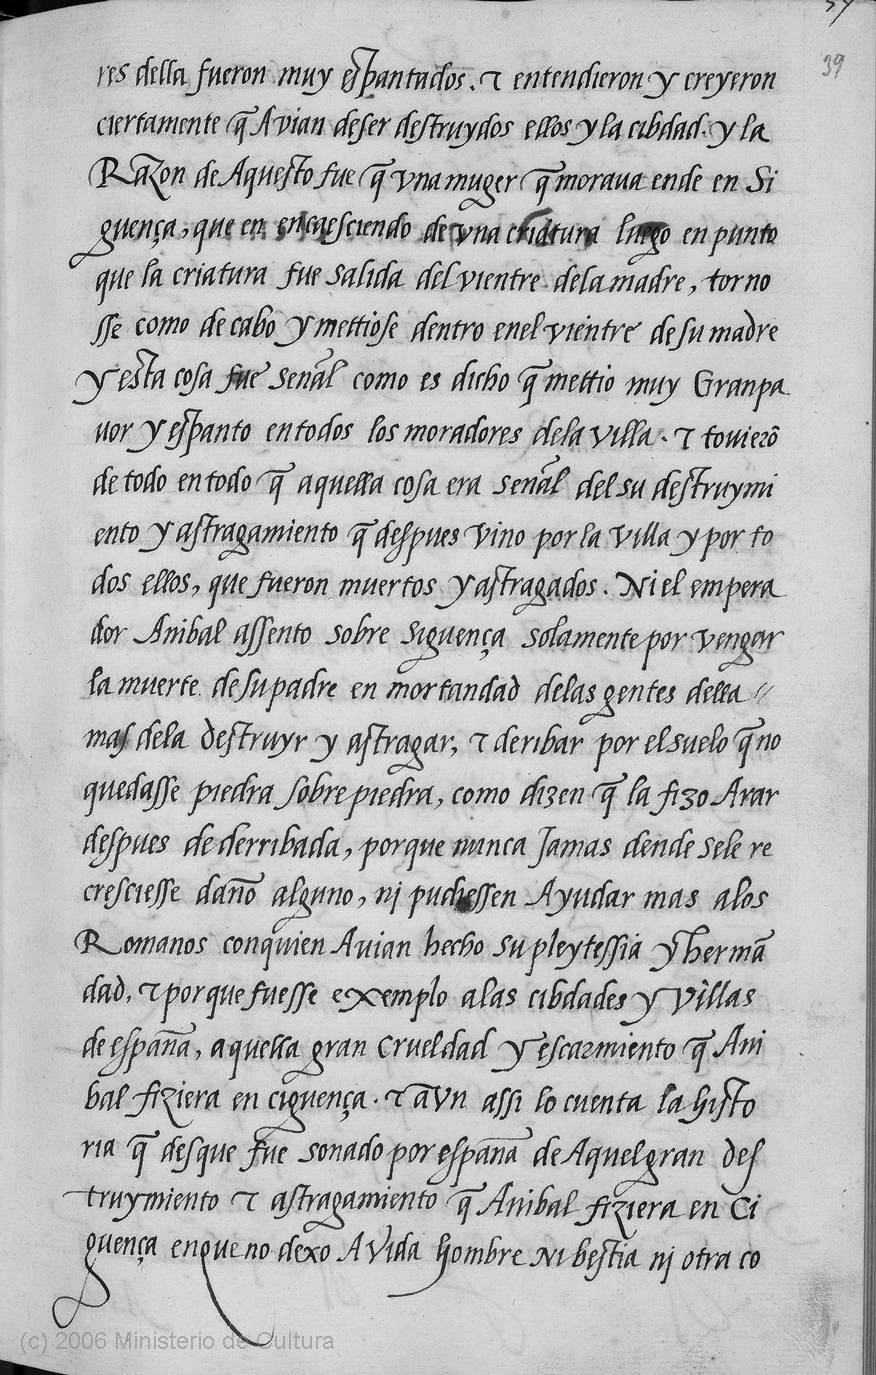 39
res della fueron muy espantados. τ entendieron y creyeron
ciertamente q̃ Avian deser destruydos ellos y la cibdad. y la
Razon de Aquesto fue q̃ vna muger q̃ moraua ende en Si
guença, que en encaesciendo de vna criatura luego en punto
que la criatura fue salida del vientre dela madre, torno
sse como de cabo y mettiose dentro enel vientre de su madre
y esta cosa fue señal como es dicho q̃ mettio muy Granpa
uor y espanto entodos los moradores dela villa. τ touierõ
de todo entodo q̃ aquella cosa era señal del su destruymi
ento y astragamiento q̃ despues vino por la villa y por to
dos ellos, que fueron muertos y astragados. Ni el empera
dor Anibal assento sobre siguença solamente por vengar
la muerte de su padre en mortandad delas gentes della //
mas dela destruyr y astragar, τ deribar por el suelo q̃ no
quedasse piedra sobre piedra, como dizen q̃ la fizo Arar
despues de derribada, porque nunca Jamas dende sele re
cresciesse daño alguno, nj pudiessen Ayudar mas alos
Romanos conquien Avian hecho su pleytessia y hermã
dad, τ porque fuesse exemplo alas cibdades y villas
de españa, aquella gran crueldad y escarmiento q̃ Ani
bal fiziera en ciguença. τ aVn assi lo cuenta la histo
ria q̃ desque fue sonado por españa de Aquel gran des
truymiento τ astragamiento q̃ Anibal fiziera en Ci
guença enque no dexo A vida hombre Ni bestia nj otra co
(c) 2006 Ministerio de Cultura